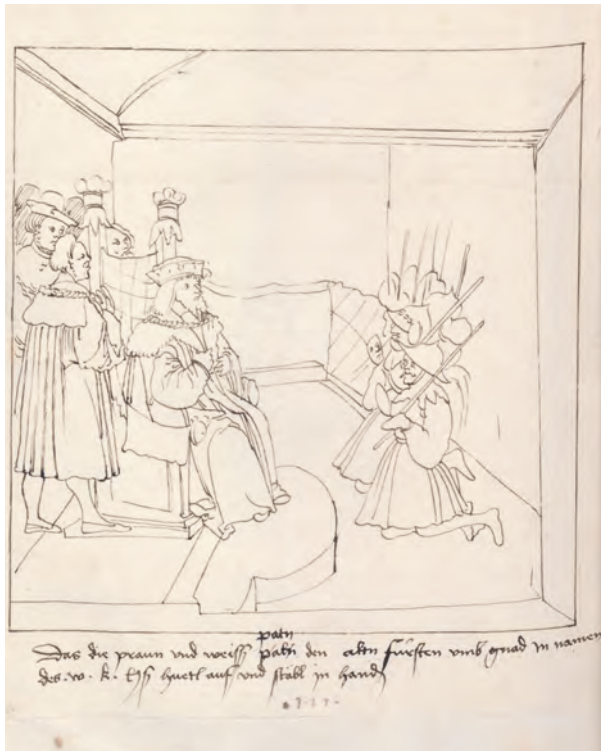 patn
Das die praun vnd weiss patn den alten fürsten vmb gnad in namen
des . w . k . huetl auf vnd stäbl in hand